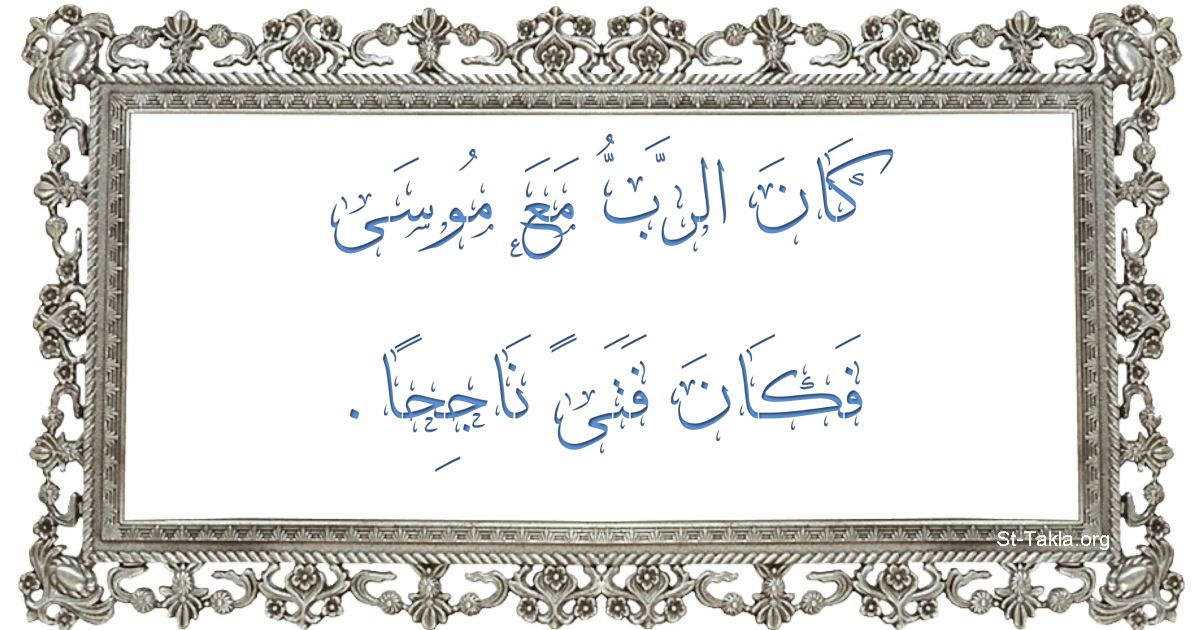 كَانَ الرَّبُّ مَعَ مُوسَى
فَكَانَ فَتَىً نَاجِحًا .
St-Takla.org